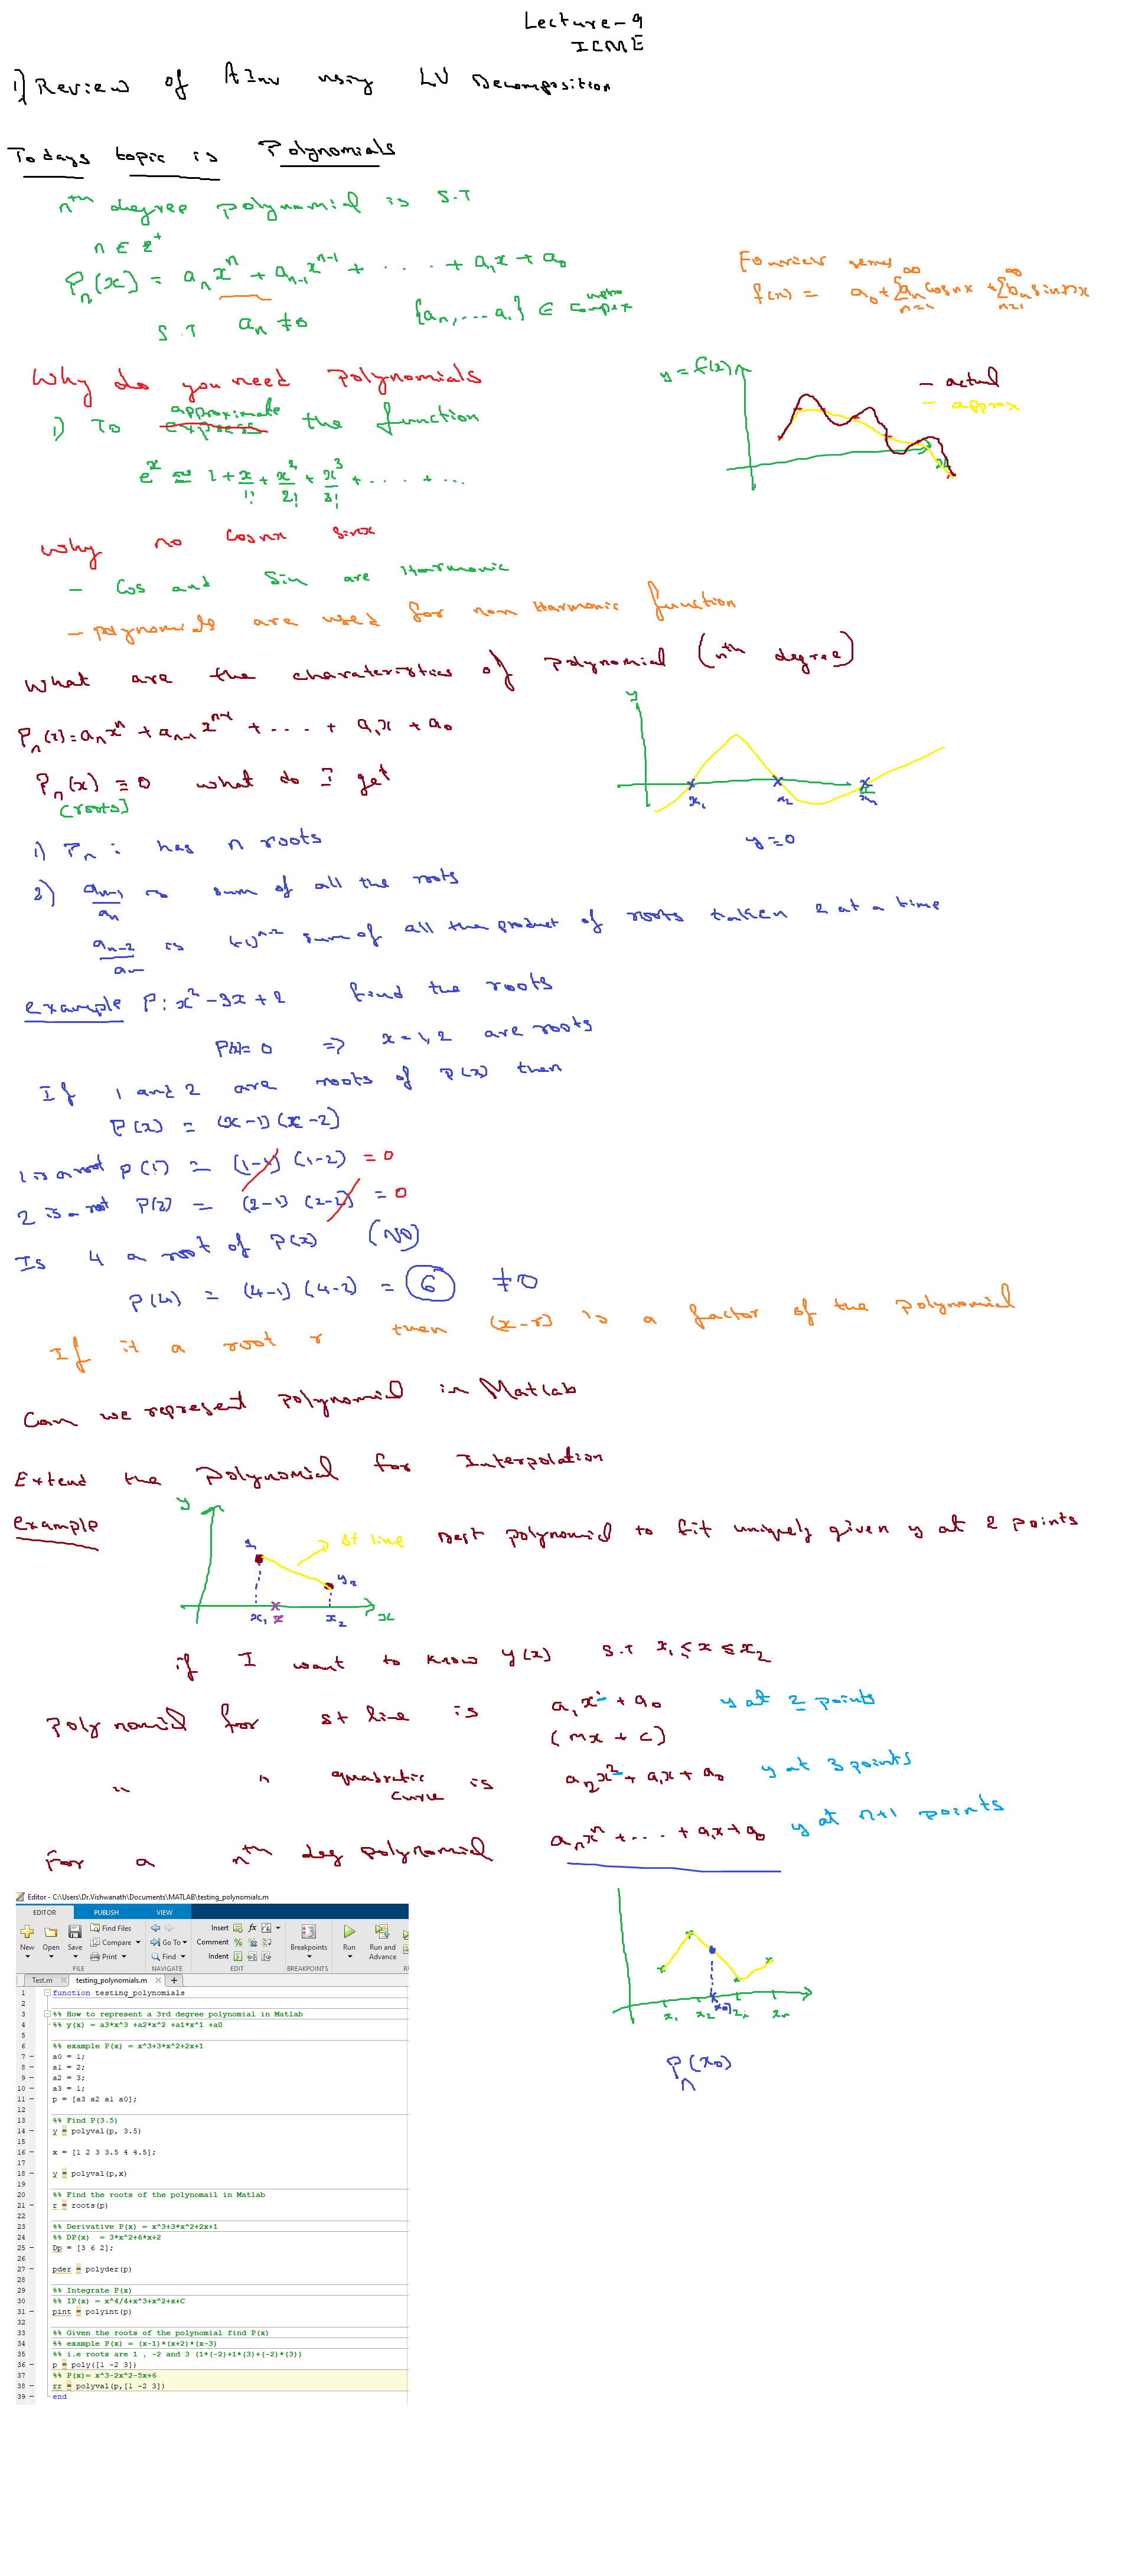 Lecture-9
ICME
1) Review of AInv using LU Decomposition
Todays topic is Polynomials
nth degree polynomial is S.T
n ∈ z+
Pn(x) = an x^n + an-1 x^n-1 + . . . . + a1 x + a0
S.T an ≠ 0 {an, ... a1} ∈ Complex
Fourier series
f(x) = a0 + ∑ an cosnx + ∑ bn sinnx
n=1 n=1
Why do you need polynomials
1) To approximate the function
express
e^x ≅ 1 + x/1! + x^2/2! + x^3/3! + . . . . + ...
y = f(x)
- actual
- approx
Why no Cosnx Sinnx
- Cos and Sin are Harmonic
- polynomials are used for non Harmonic function
What are the charateristics of polynomial (nth degree)
Pn(x) = an x^n + an-1 x^n-1 + . . . . + a1 x + a0
Pn(x) = 0 what do I get
(roots)
y
x1 x2 xn
y = 0
1) Pn : has n roots
2) an-1/an is sum of all the roots
an-2/an is (-1)^n-2 sum of all the product of roots taken 2 at a time
example P: x^2 - 3x + 2 find the roots
P(x) = 0 => x = 1, 2 are roots
If 1 and 2 are roots of P(x) then
P(x) = (x-1)(x-2)
1 is a root P(1) = (1-1)(1-2) = 0
2 is a root P(2) = (2-1)(2-2) = 0
Is 4 a root of P(x) (NO)
P(4) = (4-1)(4-2) = 6 ≠ 0
If it a root r then (x-r) is a factor of the polynomial
Can we represent polynomial in Matlab
Extend the Polynomial for Interpolation
Example
y
y1
y2
x1 x x2 x
st line
Best polynomial to fit uniquely given y at 2 points
if I want to know y(x) S.T x1 ≤ x ≤ x2
Polynomial for st line is a1 x + a0 y at 2 points
(mx + c)
" " quadratic curve is a2 x^2 + a1 x + a0 y at 3 points
For a nth deg polynomial an x^n + . . . + a1 x + a0 y at n+1 points
x1 x2 x0 xi xn
Pn(x0)
Editor - C:\Users\Dr.Vishwanath\Documents\MATLAB\testing_polynomials.m
EDITOR PUBLISH VIEW
New Open Save Find Files Compare Print
Go To Find
Insert fx
Comment %
Indent
Breakpoints Run Run and Advance
FILE NAVIGATE EDIT BREAKPOINTS
Test.m testing_polynomials.m +
1 function testing_polynomials
2
3 %% How to represent a 3rd degree polynomial in Matlab
4 %% y(x) = a3*x^3 +a2*x^2 +a1*x^1 +a0
5
6 %% example P(x) = x^3+3*x^2+2x+1
7 a0 = 1;
8 a1 = 2;
9 a2 = 3;
10 a3 = 1;
11 p = [a3 a2 a1 a0];
12
13 %% Find P(3.5)
14 y = polyval(p, 3.5)
15
16 x = [1 2 3 3.5 4 4.5];
17
18 y = polyval(p,x)
19
20 %% Find the roots of the polynomail in Matlab
21 r = roots(p)
22
23 %% Derivative P(x) = x^3+3*x^2+2x+1
24 %% DP(x) = 3*x^2+6*x+2
25 Dp = [3 6 2];
26
27 pder = polyder(p)
28
29 %% Integrate P(x)
30 %% IP(x) = x^4/4+x^3+x^2+x+C
31 pint = polyint(p)
32
33 %% Given the roots of the polynomial find P(x)
34 %% example P(x) = (x-1)*(x+2)*(x-3)
35 %% i.e roots are 1 , -2 and 3 (1*(-2)+1*(3)+(-2)*(3))
36 p = poly([1 -2 3])
37 %% P(x)= x^3-2x^2-5x+6
38 rr = polyval(p,[1 -2 3])
39 end